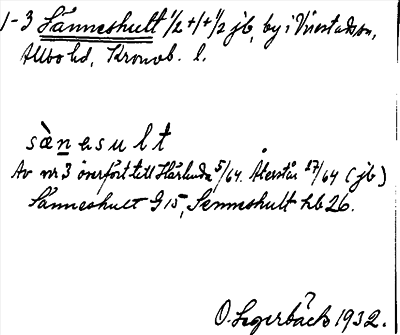 1-3 Sänneshult 1/2+1+1/2 jb, by i Virestads sn,
Allbo hd, Kronob. l.
sànesult
Av nr 3 överfört till Härlunda 5/64. Återstår 27/64 (jb)
Sänneshult G 15, Senneshult hb 26.
O. Segerbäck 1932.